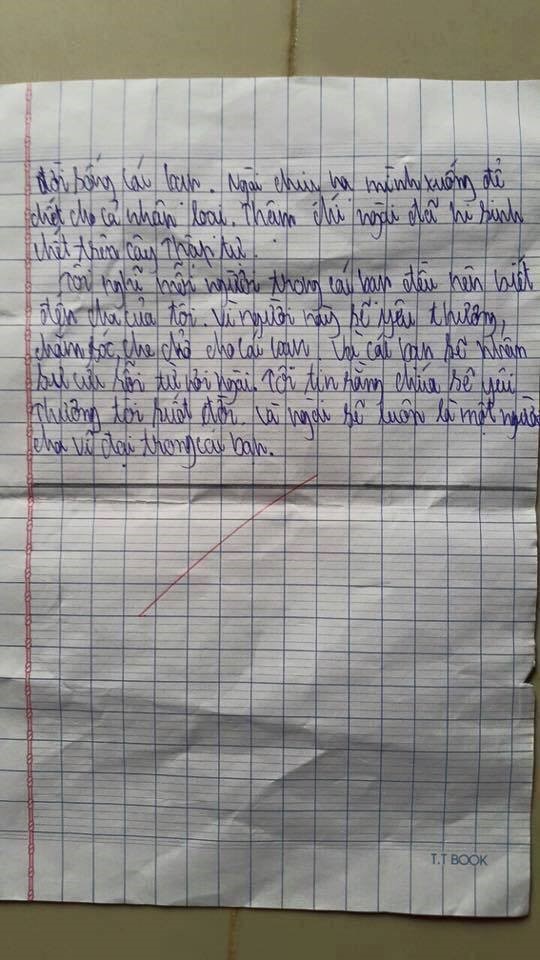 đời sống cái bạn. Ngài chịu hạ mình xuống để
chết cho cả nhân loại. Thậm chí ngài đã hi sinh
chết trên cây Thập tự.
Tôi nghĩ mỗi người trong cái bạn đều nên biết
đến cha của tôi. Vì người này sẽ yêu thương,
chăm sóc, che chở cho cái bạn. Và cái bạn sẽ nhận
sự cứu rỗi từ nơi ngài. Tôi tin rằng chúa sẽ yêu
thương tôi suốt đời. Và ngài sẽ luôn là một người
cha vĩ đại trong cái bạn.
T.T BOOK